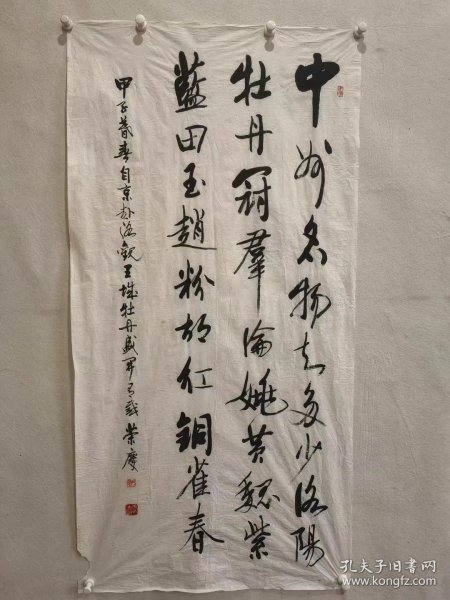 中州名物知多少洛陽
牡丹冠羣倫姚黄魏紫
藍田玉趙粉胡红銅雀春
甲子暮春自京赴洛觀王城牡丹盛開有感 荣慶
孔夫子旧书网
www.kongfz.com